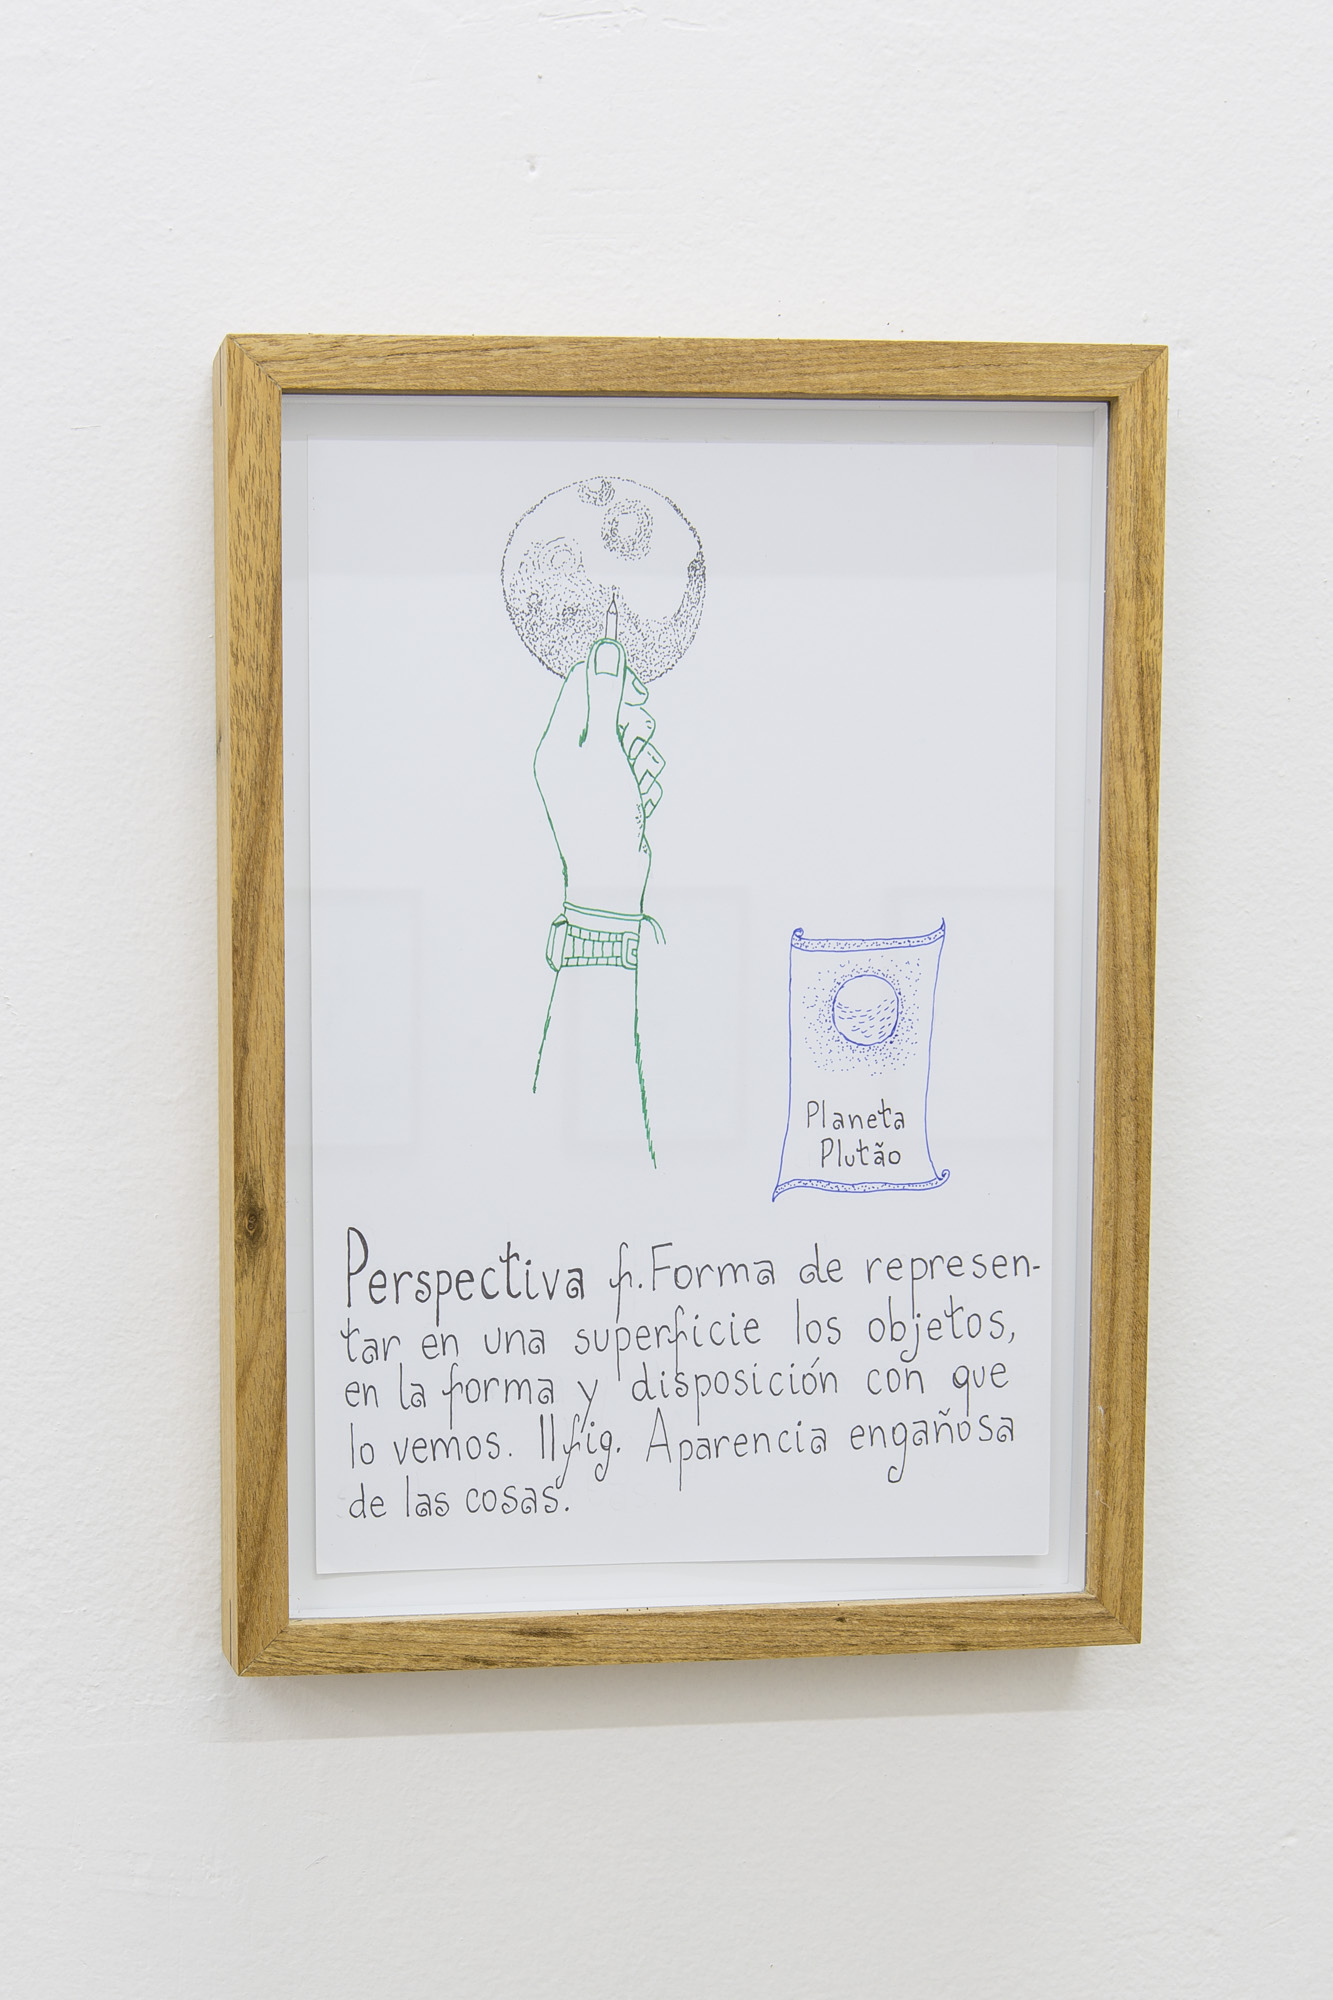 Planeta
Plutão
Perspectiva f. Forma de represen-
tar en una superficie los objetos,
en la forma y disposición con que
lo vemos. || fig. Aparencia engañosa
de las cosas.